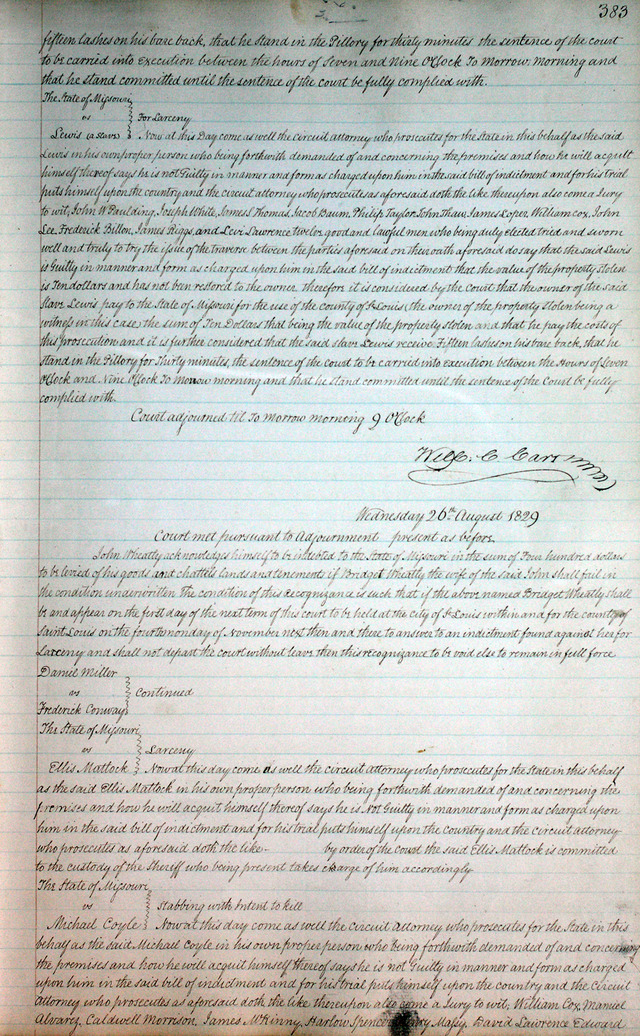 383
fifteen lashes on his bare back, that he stand in the Pillory for thirty minutes the sentence of the court
to be carried into execution between the hours of Seven and Nine O'Clock To Morrow Morning and
that he stand committed until the sentence of the court be fully complied with.
The State of Missouri
vs For Larceny
Lewis (a Slave) Now at this Day come as well the circuit attorney who prosecutes for the State in this behalf as the said
Lewis in his own proper person who being forthwith demanded of and concerning the premises and how he will acquit
himself thereof says he is not Guilty in manner and form as charged upon him in the said bill of indictment and for his trial
puts himself upon the country and the circuit attorney who prosecutes as aforesaid doth the like thereupon also come a Jury
to wit, John W Paulding, Joseph White, James S Thomas, Jacob Baum, Philip Taylor, John Thau, James Lopez, William Cox, John
Lee, Frederick Billon, James Riggs, and Levi Lawrence twelve good and lawful men who being duly elected tried and sworn
well and truly to try the issue of the traverse between the parties aforesaid on their oath aforesaid do say that the said Lewis
is Guilty in manner and form as charged upon him in the said bill of indictment that the value of the property stolen
is Ten dollars and has not been restored to the owner, therefore it is considered by the Court that the owner of the said
slave Lewis pay to the State of Missouri for the use of the county of St Louis (the owner of the property stolen being a
witness in this case) the sum of Ten Dollars that being the value of the property stolen and that he pay the costs of
this prosecution and it is further considered that the said slave Lewis receive Fifteen lashes on his bare back, that he
stand in the Pillory for Thirty minutes, the sentence of the Court to be carried into execution between the Hours of Seven
O'Clock and Nine O'Clock To Morrow morning and that he stand committed until the sentence of the Court be fully
complied with.
Court adjourned til To Morrow morning 9 O'Clock
Will. C Carr
Wednesday 26th August 1829
Court met pursuant to Adjournment present as before.
John Wheatly acknowledges himself to be indebted to the State of Missouri in the sum of Four hundred dollars
to be levied of his goods and chattels lands and tenements if Bridget Wheatly the wife of the said John shall fail in
the condition underwritten the condition of this Recognizance is such that if the above named Bridget Wheatly shall
be and appear on the first day of the next term of this court to be held at the city of St Louis within and for the county of
Saint Louis on the fourth monday of November next then and there to answer to an indictment found against her for
Larceny and shall not depart the court without leave then this recognizance to be void else to remain in full force
Daniel Miller
vs Continued
Frederick Conway
The State of Missouri
vs Larceny
Ellis Matlock Now at this day come as well the circuit attorney who prosecutes for the State in this behalf
as the said Ellis Matlock in his own proper person who being forthwith demanded of and concerning the
premises and how he will acquit himself thereof says he is Not Guilty in manner and form as charged upon
him in the said bill of indictment and for his trial puts himself upon the country and the circuit attorney
who prosecutes as aforesaid doth the like - by order of the Court the said Ellis Matlock is committed
to the custody of the Sheriff who being present takes charge of him accordingly
The State of Missouri
vs Stabbing with Intent to Kill
Michael Coyle Now at this day come as well the circuit Attorney who prosecutes for the State in this
behalf as the said Michael Coyle in his own proper person who being forthwith demanded of and concerning
the premises and how he will acquit himself thereof says he is not Guilty in manner and form as charged
upon him in the said bill of indictment and for his trial puts himself upon the country and the Circuit
Attorney who prosecutes as aforesaid doth the like thereupon also come a Jury to wit, William Cox, Manuel
Alvarez, Caldwell Morrison, James McKinny, Harlow Spencer Massy, David Lawrence Edward